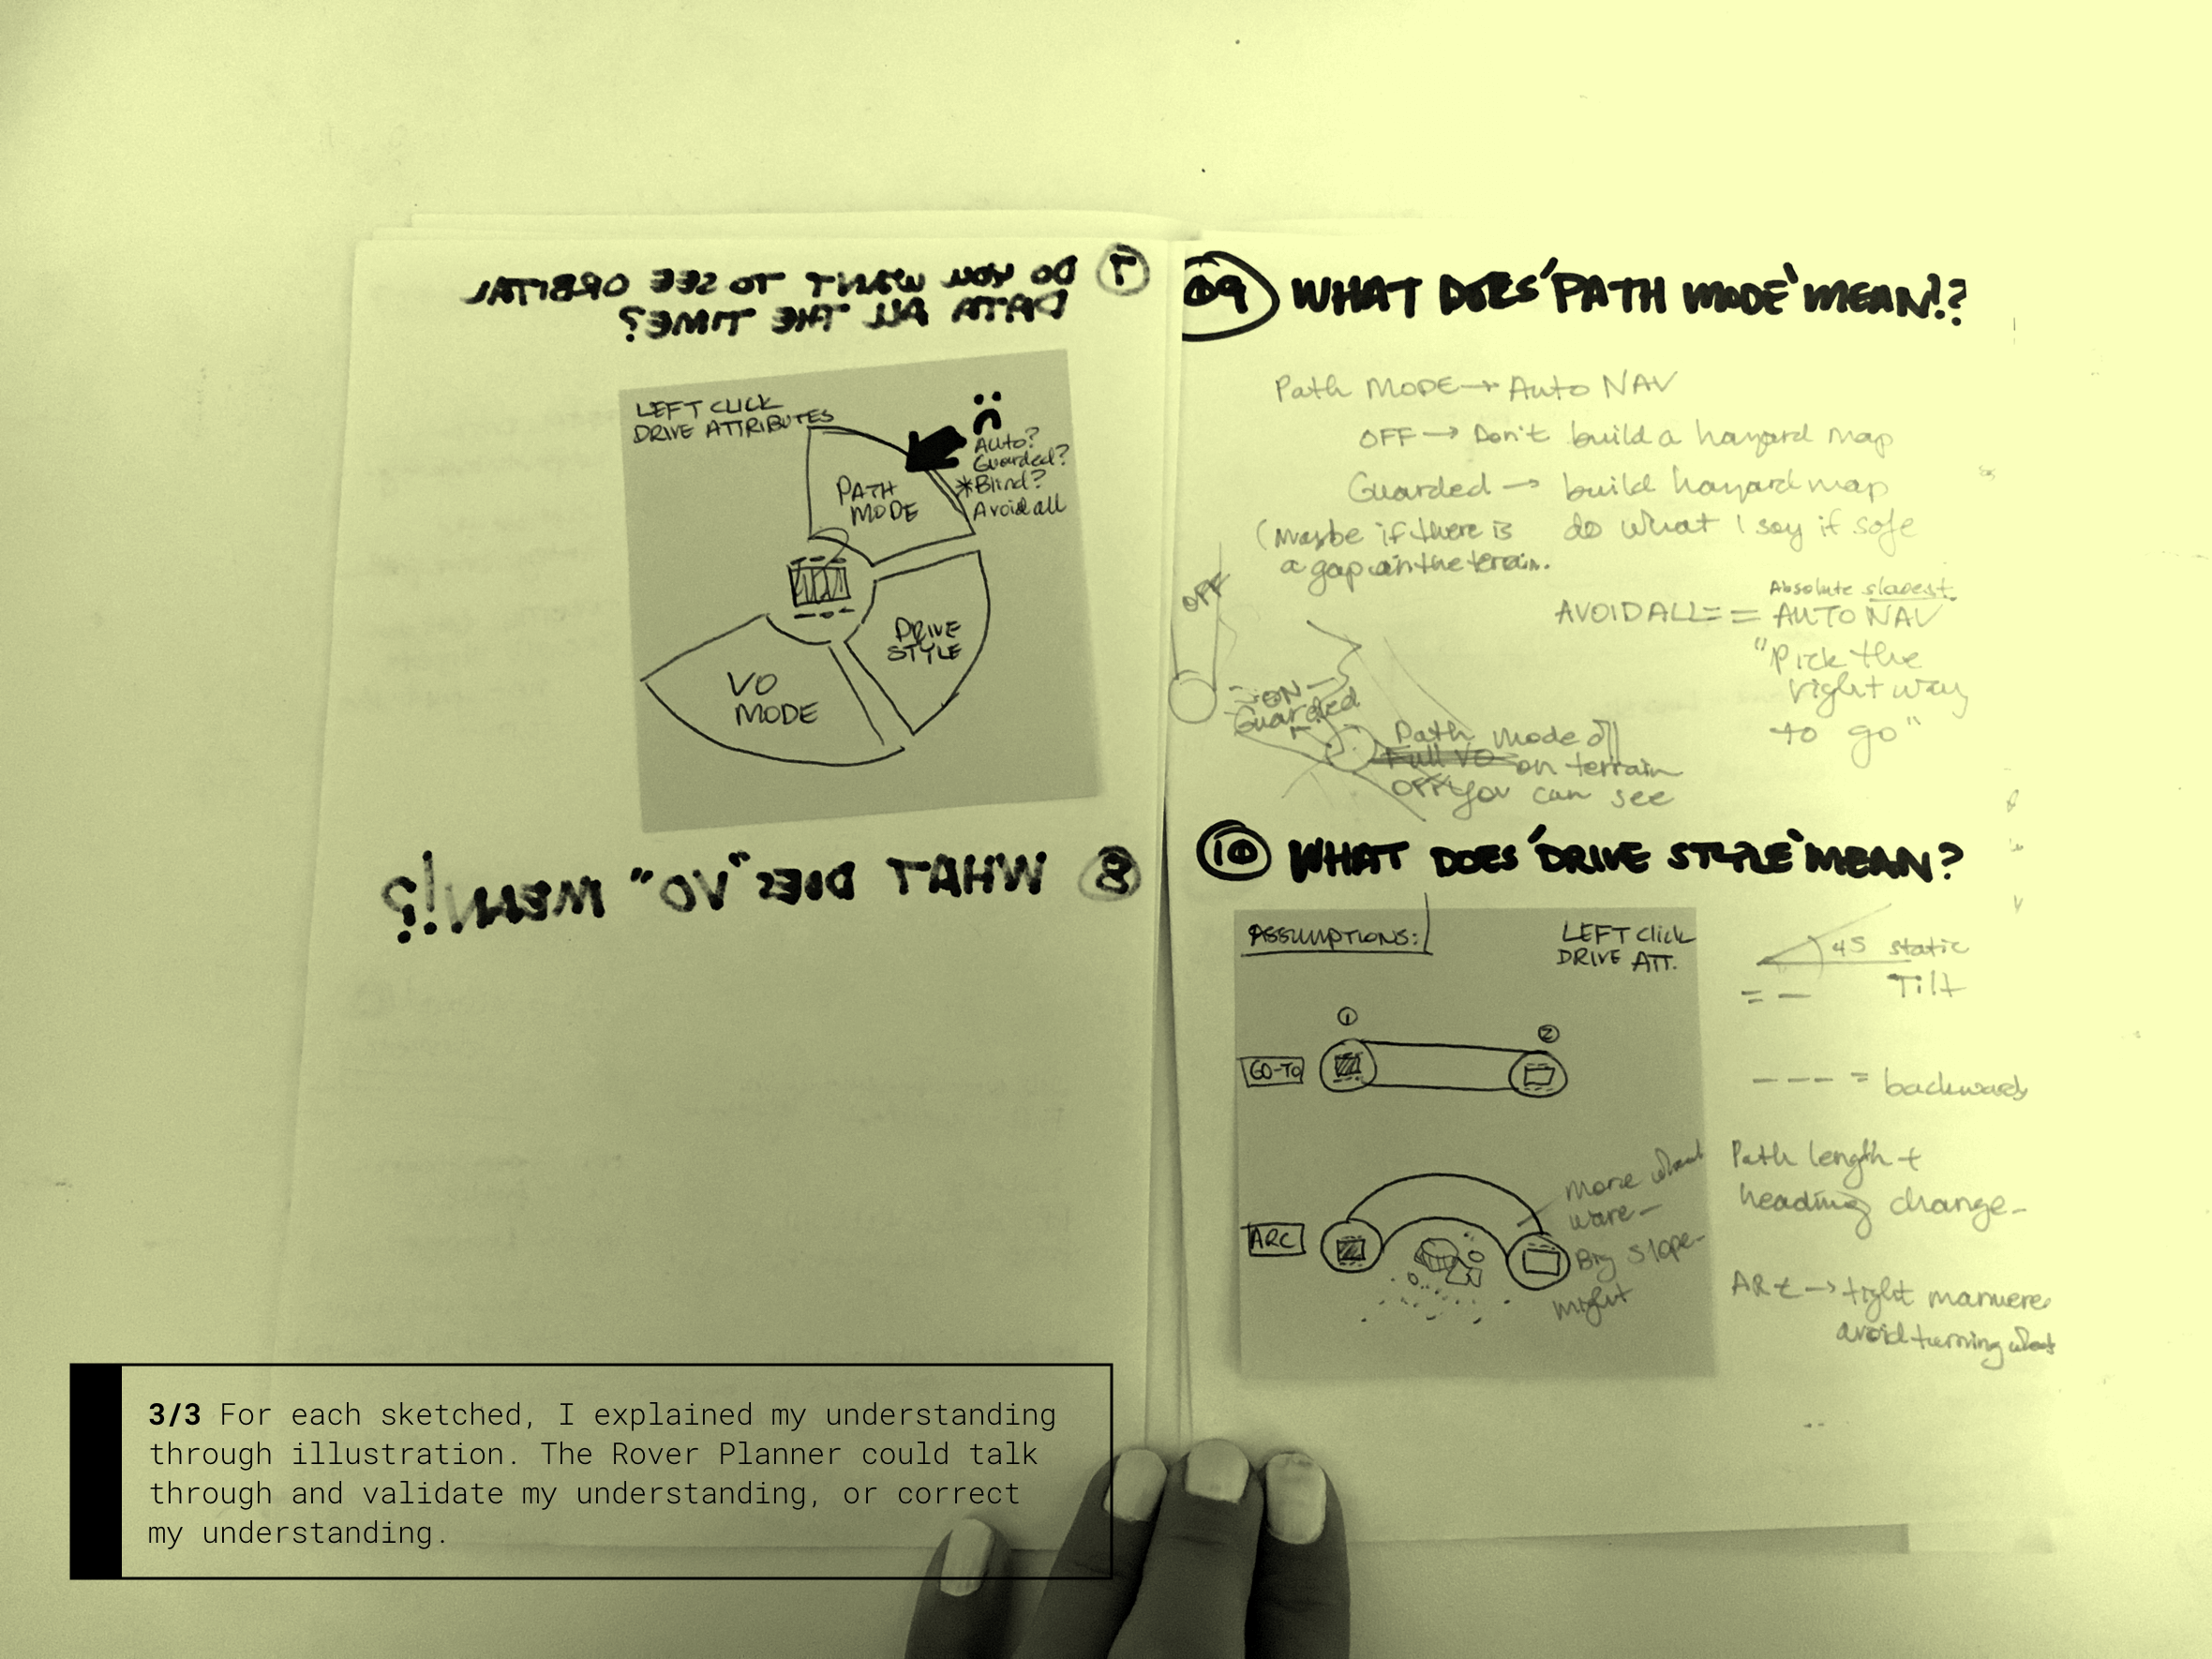 7 DO YOU WANT TO SEE ORBITAL
DATA ALL THE TIME?
LEFT CLICK
DRIVE ATTRIBUTES
Auto?
Guarded?
*Blind?
Avoid all
PATH
MODE
DRIVE
STYLE
VO
MODE
8 WHAT DOES "VO" MEAN!?
09 WHAT DOES 'PATH MODE' MEAN!?
Path MODE → Auto NAV
OFF → Don't build a hazard map
Guarded → build hazard map
(Maybe if there is do what I say if safe
a gap in the terrain.
OFF
Absolute slowest
AVOID ALL == AUTO NAV
"Pick the
right way
to go"
ON
Guarded
Path mode off
Full VO on terrain
OFF you can see
10 WHAT DOES 'DRIVE STYLE' MEAN?
ASSUMPTIONS:
LEFT Click
DRIVE ATT.
1
2
GO-TO
ARC
More wheel
ware-
Big Slope-
might
45 static
Tilt
--- = backwards
Path length +
heading change-
ARC → tight
avoid turning
3/3 For each sketched, I explained my understanding
through illustration. The Rover Planner could talk
through and validate my understanding, or correct
my understanding.